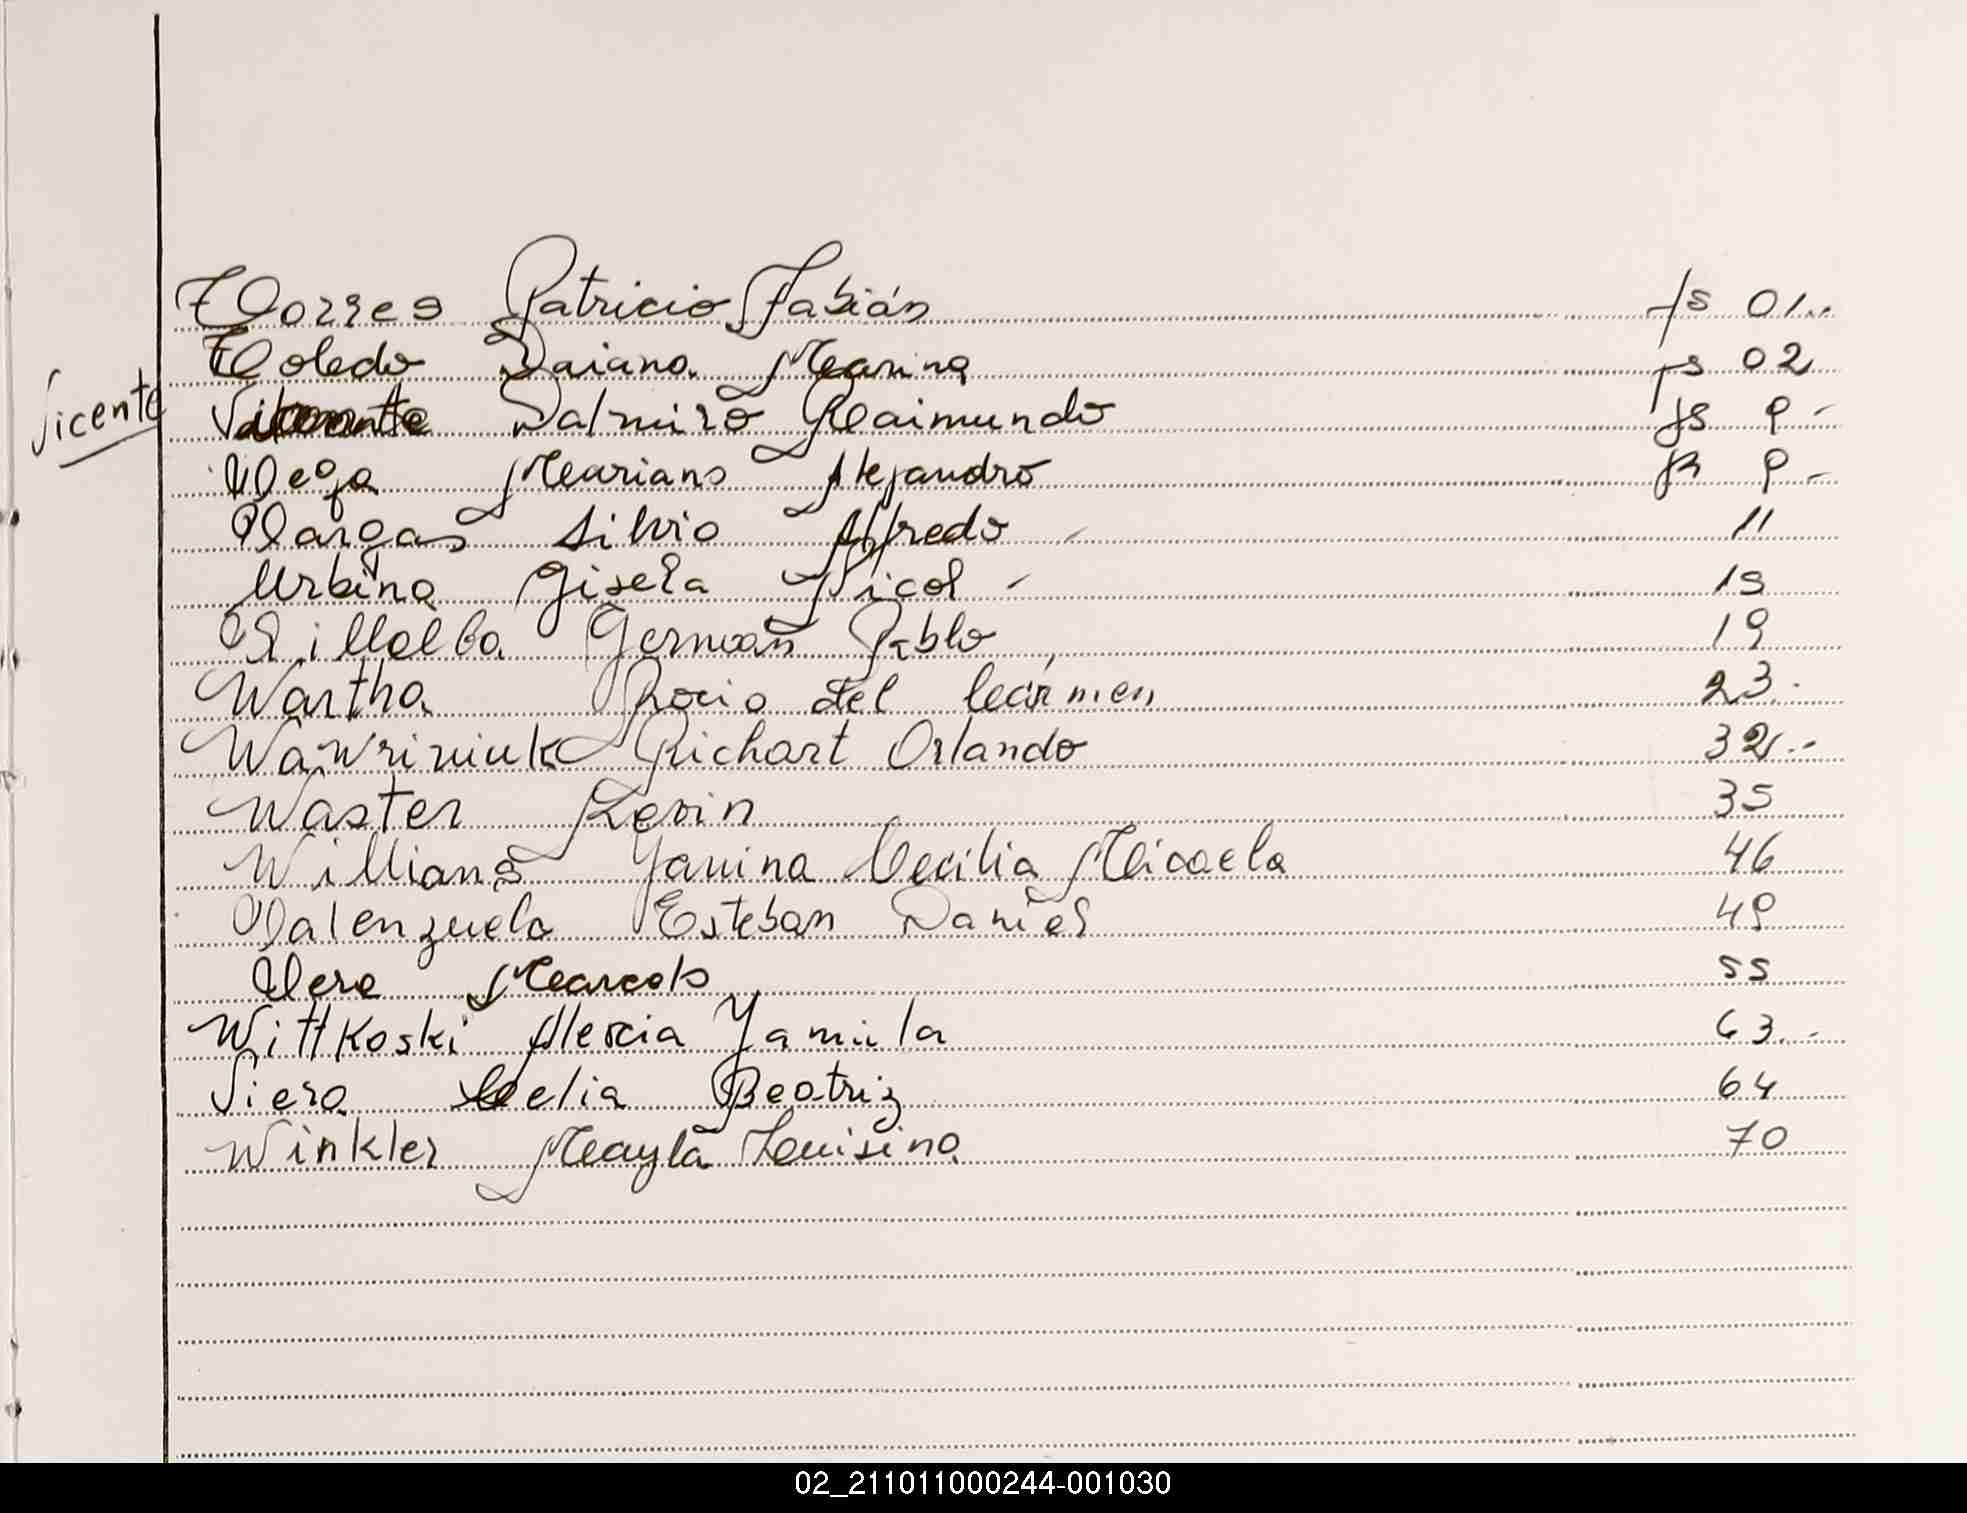 Torres Patricio Fabián fs 01..
Toledo Daiana Marina fs 02
Vicente
Vicente Dalmiro Raimundo fs 9-
Vega Mariano Alejandro fs 9-
Vargas Silvio Alfredo - 11
Urbina Gisela Nicol - 15
Villalba Germán Pablo, 19
Wartha Rocio del Carmen 23.
Wawriniuk Richart Orlando 32.-
Waster Kevin 35
Willians Yanina Cecilia Micaela 46
Valenzuela Esteban Daniel 49
Vera Marcos 55
Wittkoski Alexia Yamila 63.-
Viera Celia Beatriz 64
Winkler Mayla Louisina 70
02_211011000244-001030